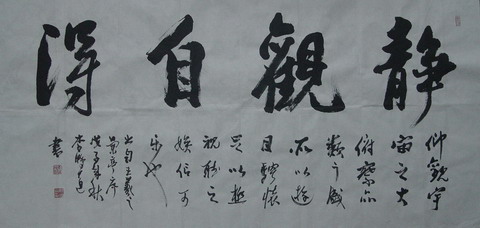 静觀自得
仰觀宇
宙之大
俯察品
類之盛
所以遊
目騁懷
足以極
視聽之
娛信可
樂也
王羲之
蘭亭序
戊子年秋
書